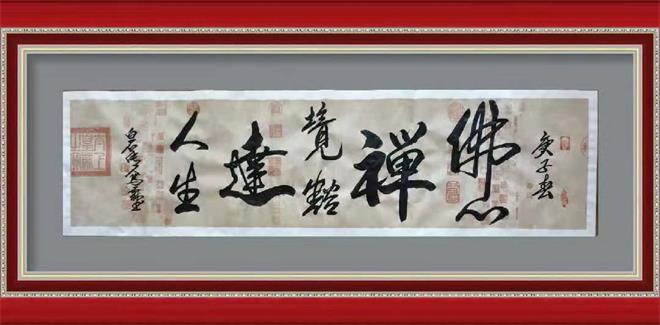 庚子春
佛心
禪
境豁
達
人生